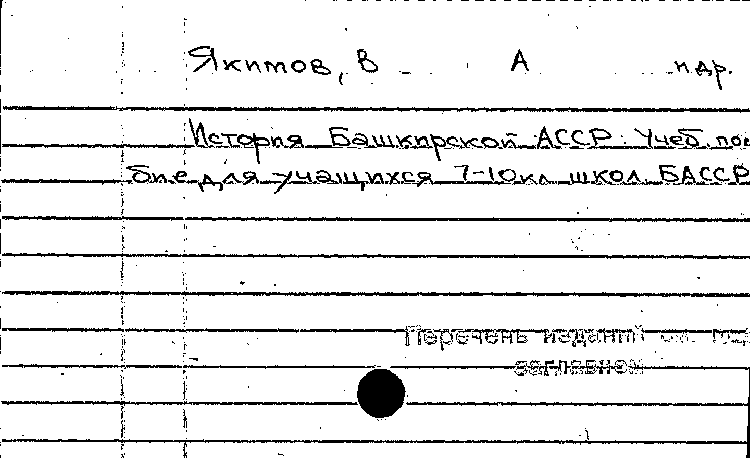 Якимов, В А и др.
История Башкирской АССР: Учеб. пос
бие для учащихся 7-10 кл школ БАССР
Перечень изданий см. на
заглавном